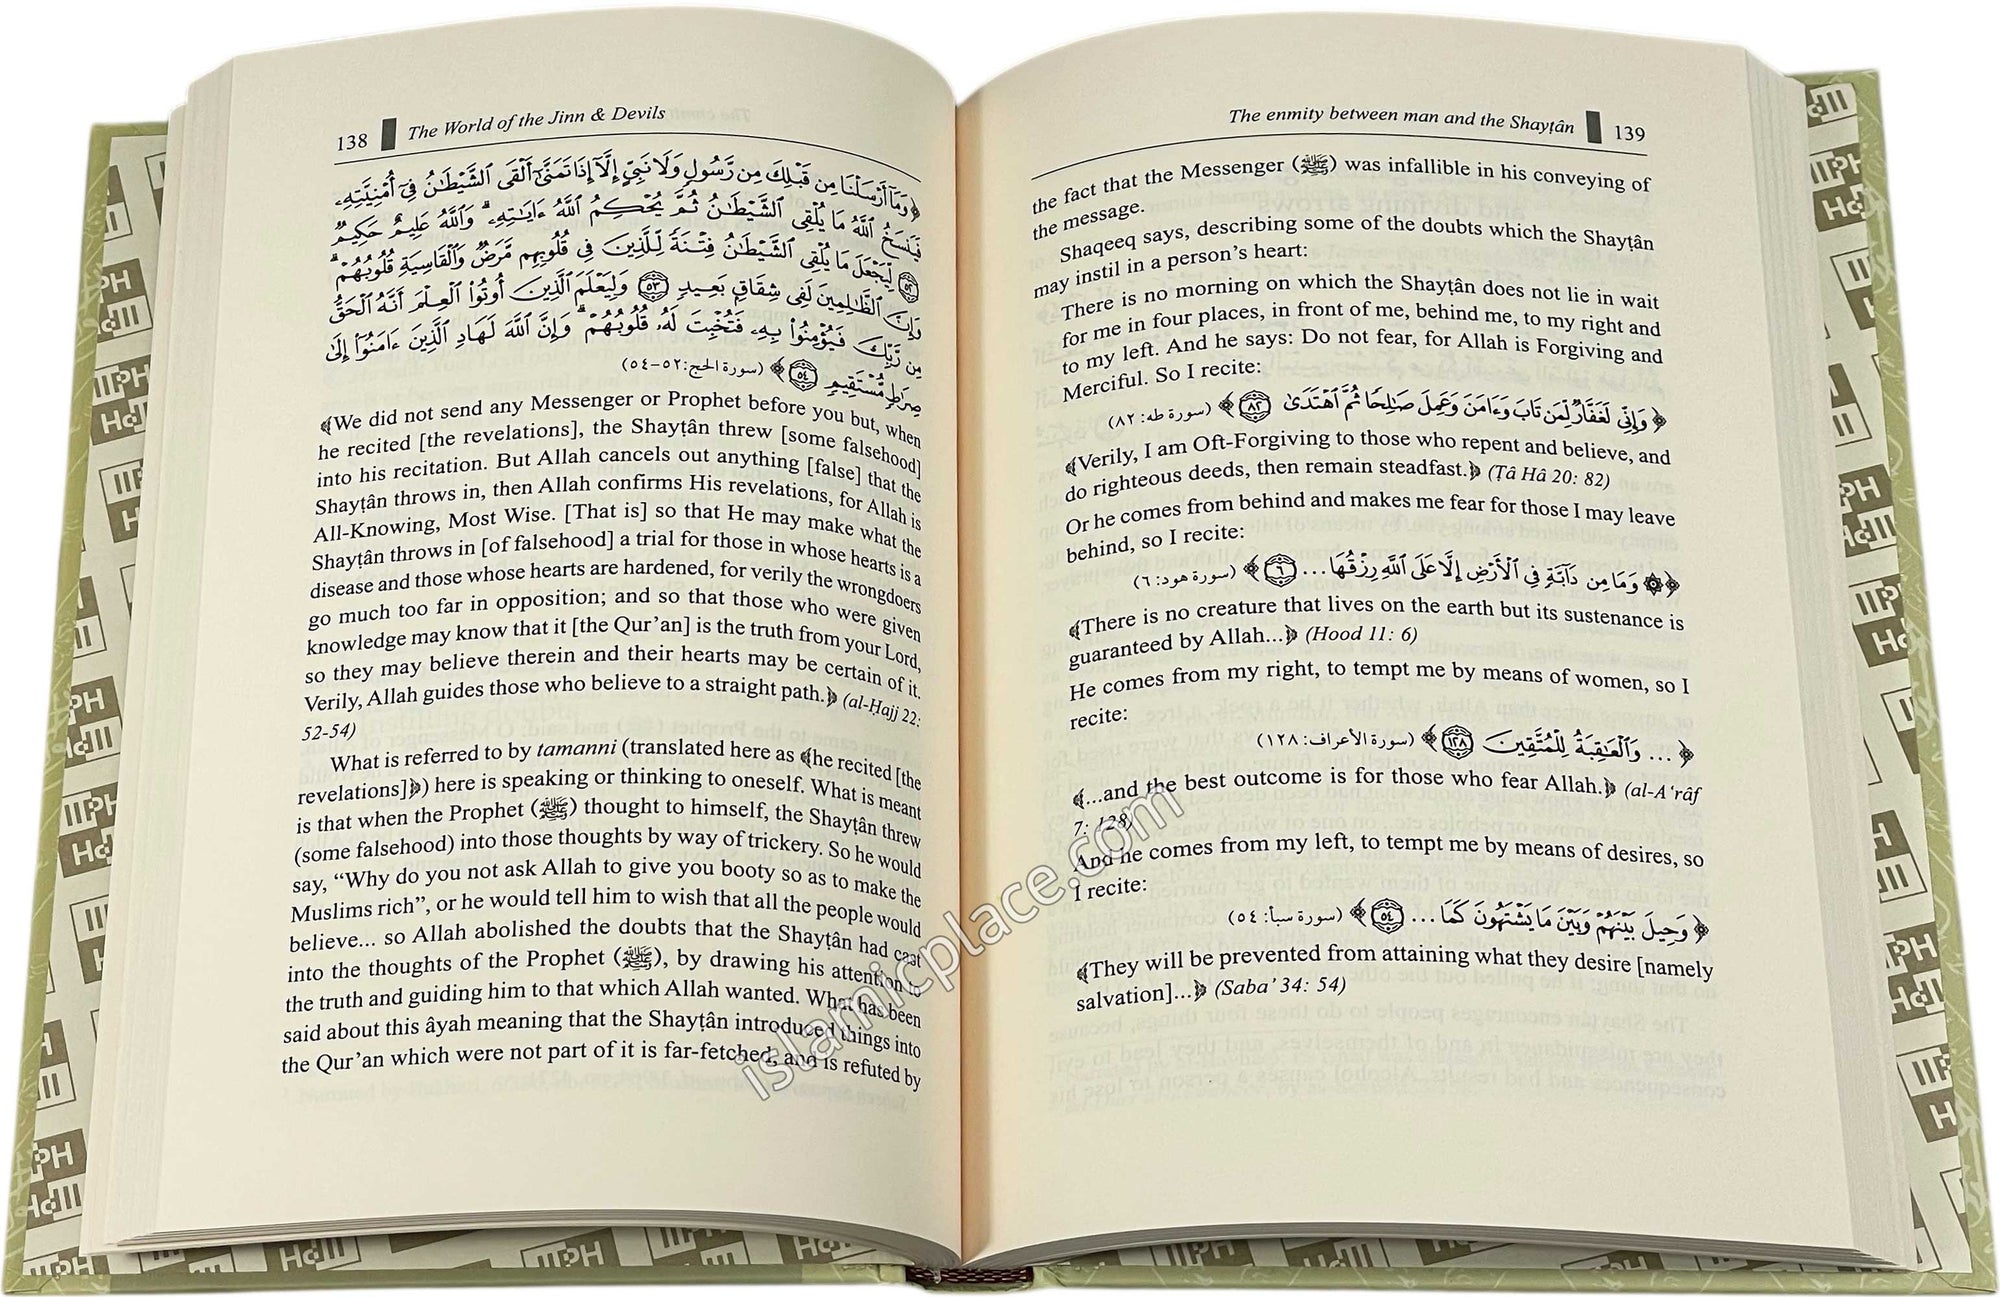 138 The World of the Jinn & Devils
﴿وَمَآ أَرْسَلْنَا مِن قَبْلِكَ مِن رَّسُولٍ وَلَا نَبِيٍّ إِلَّآ إِذَا تَمَنَّىٰٓ أَلْقَى ٱلشَّيْطَـٰنُ فِىٓ أُمْنِيَّتِهِۦ
فَيَنسَخُ ٱللَّهُ مَا يُلْقِى ٱلشَّيْطَـٰنُ ثُمَّ يُحْكِمُ ٱللَّهُ ءَايَـٰتِهِۦ ۗ وَٱللَّهُ عَلِيمٌ حَكِيمٌ
﴿٥٢﴾ لِّيَجْعَلَ مَا يُلْقِى ٱلشَّيْطَـٰنُ فِتْنَةً لِّلَّذِينَ فِى قُلُوبِهِم مَّرَضٌ وَٱلْقَاسِيَةِ قُلُوبُهُمْ ۗ
وَإِنَّ ٱلظَّـٰلِمِينَ لَفِى شِقَاقٍۭ بَعِيدٍ ﴿٥٣﴾ وَلِيَعْلَمَ ٱلَّذِينَ أُوتُوا۟ ٱلْعِلْمَ أَنَّهُ ٱلْحَقُّ
مِن رَّبِّكَ فَيُؤْمِنُوا۟ بِهِۦ فَتُخْبِتَ لَهُۥ قُلُوبُهُمْ ۗ وَإِنَّ ٱللَّهَ لَهَادِ ٱلَّذِينَ ءَامَنُوٓا۟ إِلَىٰ
صِرَٰطٍ مُّسْتَقِيمٍ ﴿٥٤﴾﴾ (سورة الحج: ٥٢-٥٤)
﴾We did not send any Messenger or Prophet before you but, when
he recited [the revelations], the Shayṭân threw [some falsehood]
into his recitation. But Allah cancels out anything [false] that the
Shayṭân throws in, then Allah confirms His revelations, for Allah is
All-Knowing, Most Wise. [That is] so that He may make what the
Shayṭân throws in [of falsehood] a trial for those in whose hearts is a
disease and those whose hearts are hardened, for verily the wrongdoers
go much too far in opposition; and so that those who were given
knowledge may know that it [the Qur’an] is the truth from your Lord,
so they may believe therein and their hearts may be certain of it.
Verily, Allah guides those who believe to a straight path.﴿ (al-Ḥajj 22:
52-54)
What is referred to by tamanni (translated here as ﴾he recited [the
revelations]﴿) here is speaking or thinking to oneself. What is meant
is that when the Prophet (ﷺ) thought to himself, the Shayṭân threw
(some falsehood) into those thoughts by way of trickery. So he would
say, “Why do you not ask Allah to give you booty so as to make the
Muslims rich”, or he would tell him to wish that all the people would
believe... so Allah abolished the doubts that the Shayṭân had cast
into the thoughts of the Prophet (ﷺ), by drawing his attention to
the truth and guiding him to that which Allah wanted. What has been
said about this âyah meaning that the Shayṭân introduced things into
the Qur’an which were not part of it is far-fetched, and is refuted by
The enmity between man and the Shayṭân 139
the fact that the Messenger (ﷺ) was infallible in his conveying of
the message.
Shaqeeq says, describing some of the doubts which the Shayṭân
may instil in a person’s heart:
There is no morning on which the Shayṭân does not lie in wait
for me in four places, in front of me, behind me, to my right and
to my left. And he says: Do not fear, for Allah is Forgiving and
Merciful. So I recite:
﴿وَإِنِّى لَغَفَّارٌ لِّمَن تَابَ وَءَامَنَ وَعَمِلَ صَـٰلِحًا ثُمَّ ٱهْتَدَىٰ ﴿٨٢﴾﴾ (سورة طه: ٨٢)
﴾Verily, I am Oft-Forgiving to those who repent and believe, and
do righteous deeds, then remain steadfast.﴿ (Ṭâ Hâ 20: 82)
Or he comes from behind and makes me fear for those I may leave
behind, so I recite:
﴿۞ وَمَا مِن دَآبَّةٍ فِى ٱلْأَرْضِ إِلَّا عَلَى ٱللَّهِ رِزْقُهَا... ﴿٦﴾﴾ (سورة هود: ٦)
﴾There is no creature that lives on the earth but its sustenance is
guaranteed by Allah...﴿ (Hood 11: 6)
He comes from my right, to tempt me by means of women, so I
recite:
﴿... وَٱلْعَـٰقِبَةُ لِلْمُتَّقِينَ ﴿١٢٨﴾﴾ (سورة الأعراف: ١٢٨)
﴾...and the best outcome is for those who fear Allah.﴿ (al-A‘râf
7: 128)
And he comes from my left, to tempt me by means of desires, so
I recite:
﴿وَحِيلَ بَيْنَهُمْ وَبَيْنَ مَا يَشْتَهُونَ كَمَا... ﴿٥٤﴾﴾ (سورة سبأ: ٥٤)
﴾They will be prevented from attaining what they desire [namely
salvation]...﴿ (Saba’ 34: 54)
islamicplace.com
IIPH